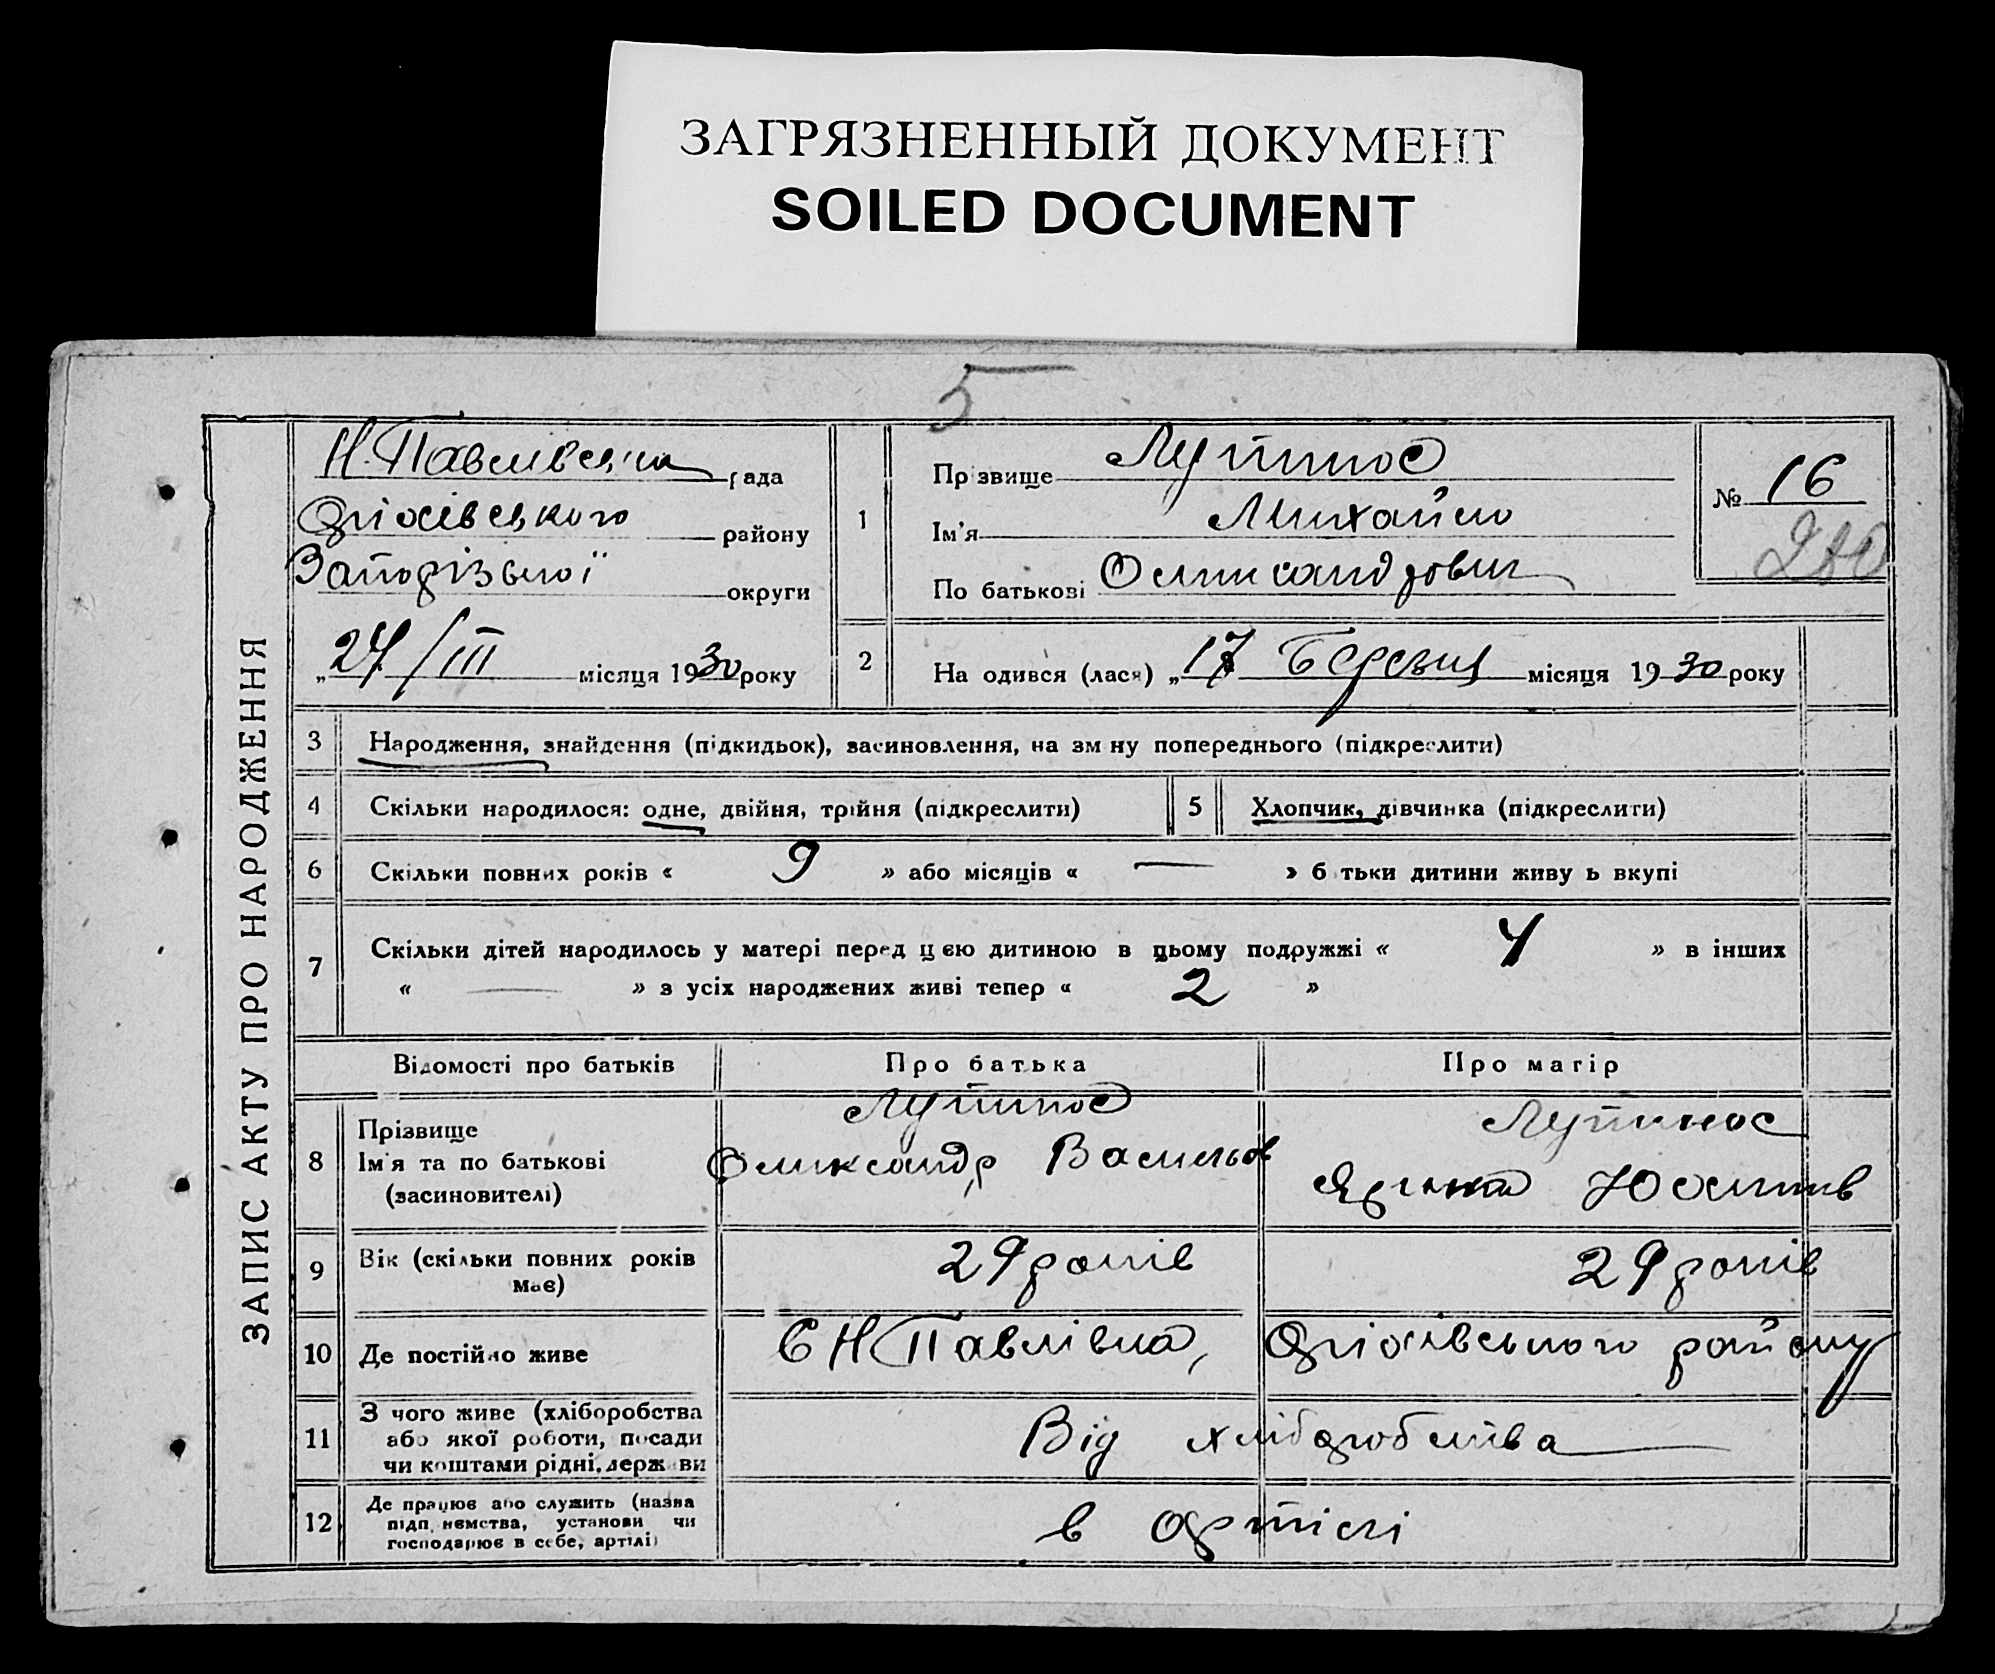 ЗАГРЯЗНЕННЫЙ ДОКУМЕНТ
SOILED DOCUMENT
5
ЗАПИС АКТУ ПРО НАРОДЖЕННЯ
Н. Павлівська рада
Оріхівського району
Запорізької округи
„27/III місяця 1930 року
1
Прізвище Лутинос
Ім'я Михайло
По батькові Олександрович
№ 16
2
Народився (лася) „17 Березня місяця 1930 року
3 Народження, знайдення (підкидьок), засиновлення, на зміну попереднього (підкреслити)
4 Скільки народилося: одне, двійня, трійня (підкреслити)
5 Хлопчик, дівчинка (підкреслити)
6 Скільки повних років « 9 » або місяців « — » батьки дитини живуть вкупі
7 Скільки дітей народилось у матері перед цією дитиною в цьому подружжі « 4 » в інших
« — » з усіх народжених живі тепер « 2 »
Відомості про батьків Про батька Про матір
8 Прізвище
Ім'я та по батькові
(засиновителі)
Лутинос
Олександр Васильов
Лутинос
9 Вік (скільки повних років
має)
29 років
29 років
10 Де постійно живе
С Н Павлівка, Оріхівського району
11 З чого живе (хліборобства
або якої роботи, посади
чи коштами рідні, держави
Від хліборобства
12 Де працює або служить (назва
підприємства, установи чи
господарює в себе, артілі)
в артілі